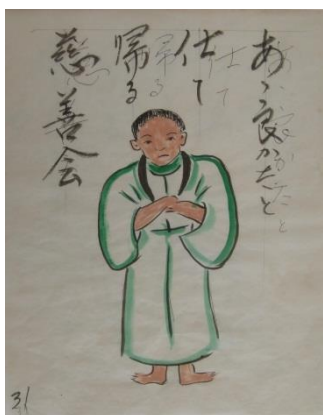 あゝ良かたと
仕て
帰る
慈善会
31